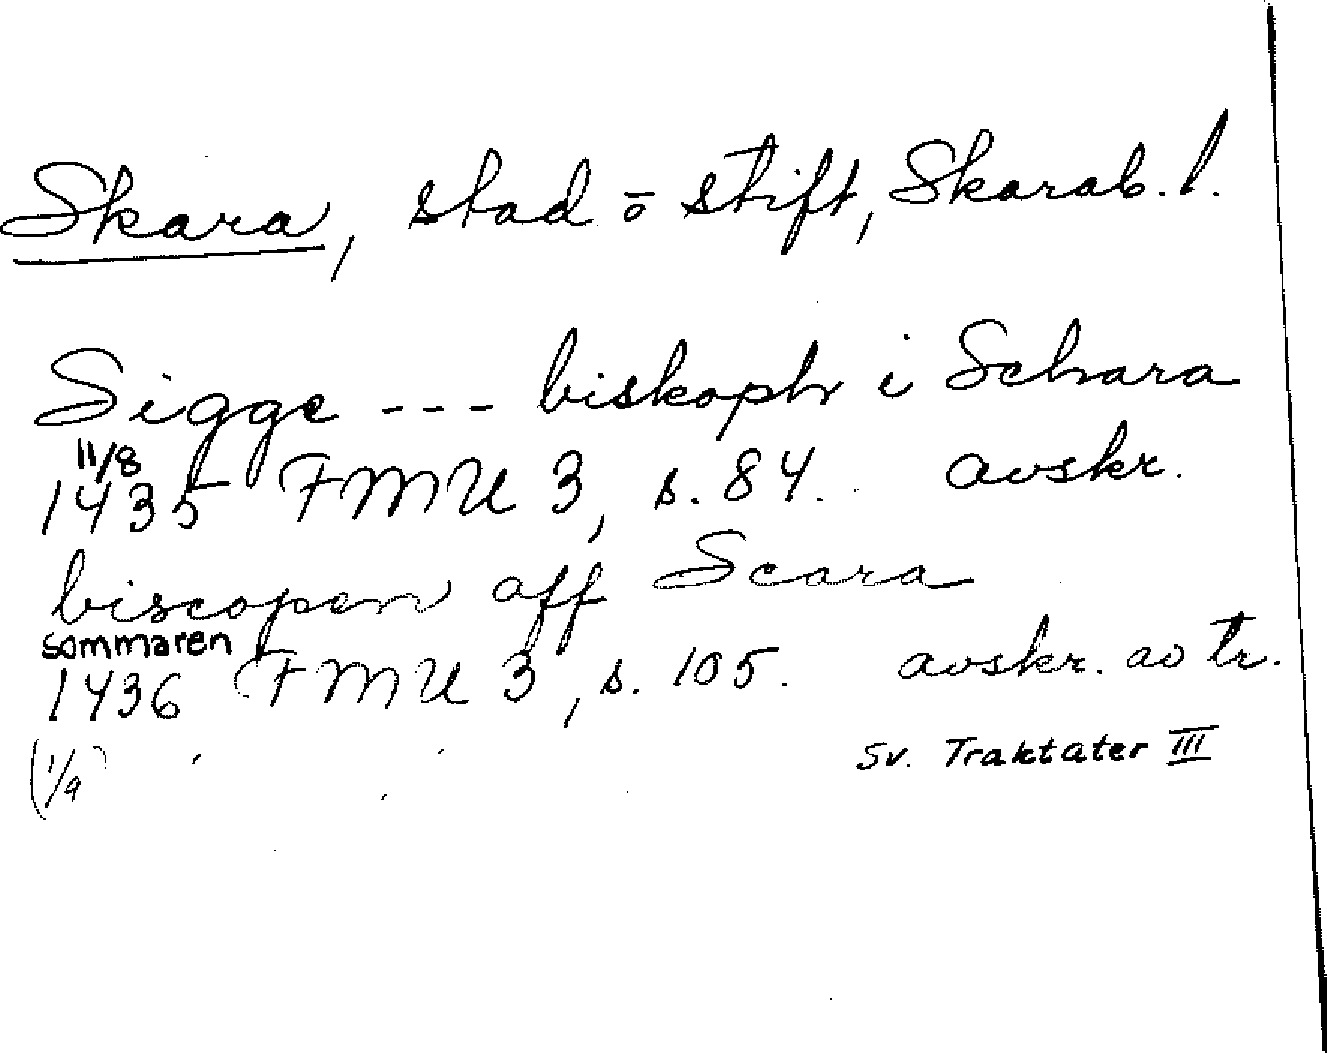 Skara, stad o stift, Skarab. l.
Sigge --- biskoph i Schara
11/8
1435 FMU 3, s. 84. avskr.
biscopen aff Scara
sommaren
1436 FMU 3, s. 105. avskr. av tr.
(1/9) Sv. Traktater III